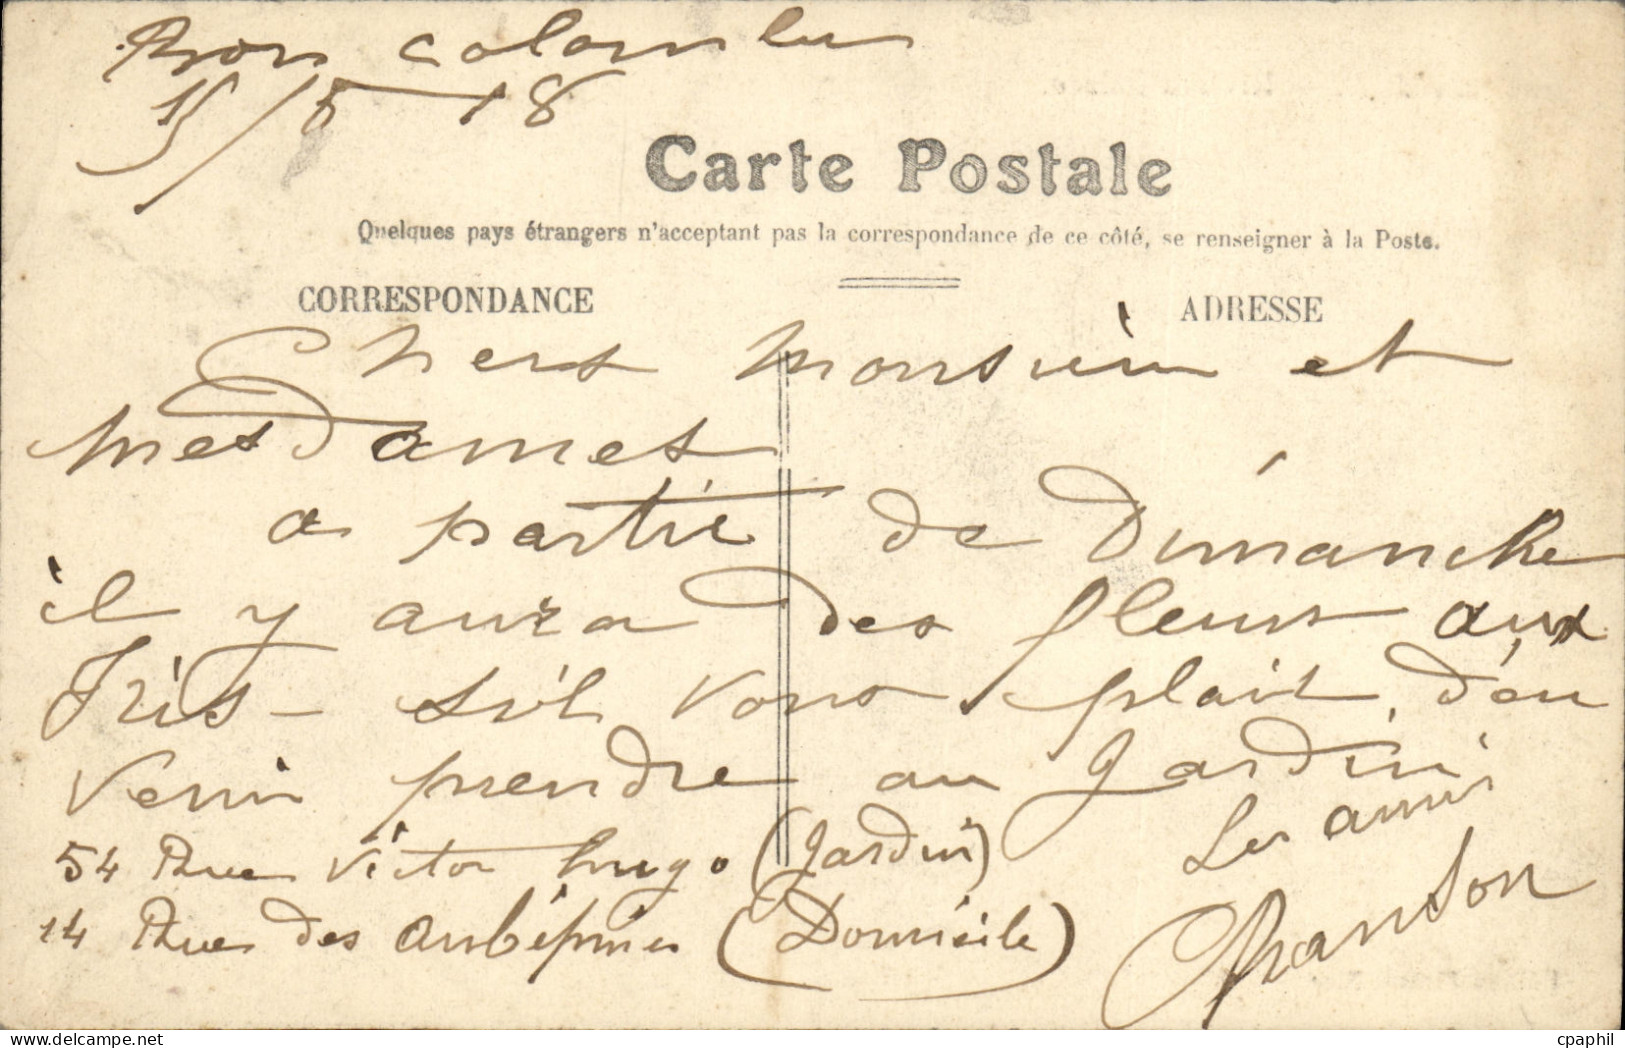 Bois colombes
15/5-18
Carte Postale
Quelques pays étrangers n'acceptant pas la correspondance de ce côté, se renseigner à la Poste.
CORRESPONDANCE
ADRESSE
Chers Monsieur et
Mesdames
a partir de Dimanche
il y aura des fleurs aux
Iris - s'il vous plait d'en
venir prendre au Jardin
Les amis
54 Rue Victor hugo (Jardin)
Chanson
14 Rue des Aubépines (Domicile)
cpaphil